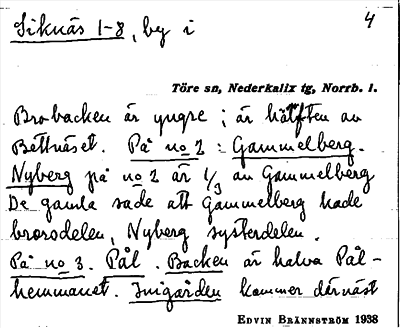 4
Siknäs 1-8, by i
Töre sn, Nederkalix tg, Norrb. l.
Brobacken är yngre; är hälften av
Bettnäset. På no 2: Gammelberg.
Nyberg på no 2 är 1/3 av Gammelberg
De gamla sade att Gammelberg hade
brorsdelen, Nyberg systerdelen.
På no 3. Pål. Backen är halva Pål-
hemmanet. Inigården kommer därnäst
EDVIN BRÄNNSTRÖM 1938